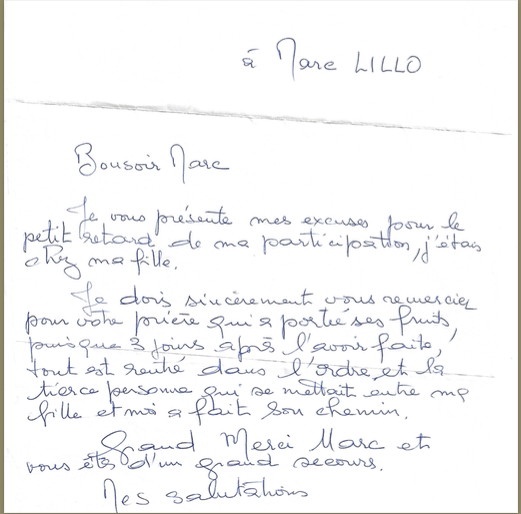 à Marc LILLO
Bonsoir Marc
Je vous présente mes excuses pour le
petit retard de ma participation, j'étais
chez ma fille.
Je dois sincèrement vous remercier
pour votre prière qui a porté ses fruits,
puisque 3 jours après l'avoir faite,
tout est rentré dans l'ordre, et la
tierce personne qui se mettait entre ma
fille et moi a fait son chemin.
Grand Merci Marc et
vous êtes d'un grand secours.
Mes salutations